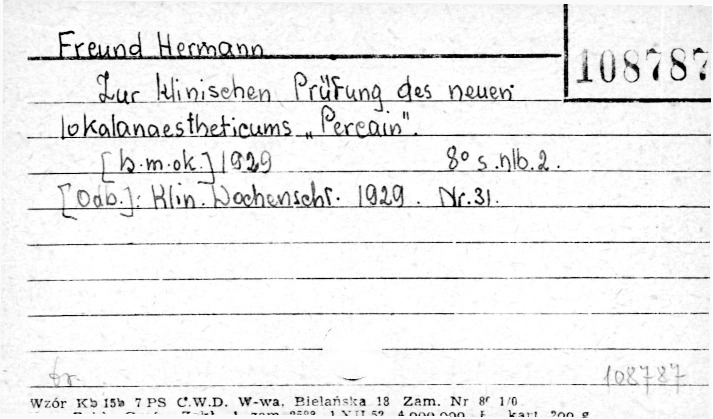 Freund Hermann
108787
Zur klinischen Prüfung des neuen
lokalanaestheticums „Percain".
[b.m.ok.] 1929 8° s.nlb.2.
[Odb.]: Klin. Wochenschr. 1929. Nr.31.
108787
Wzór Kb 15b 7 PS C.W.D. W-wa, Bielańska 18 Zam. Nr
kart. 200 g